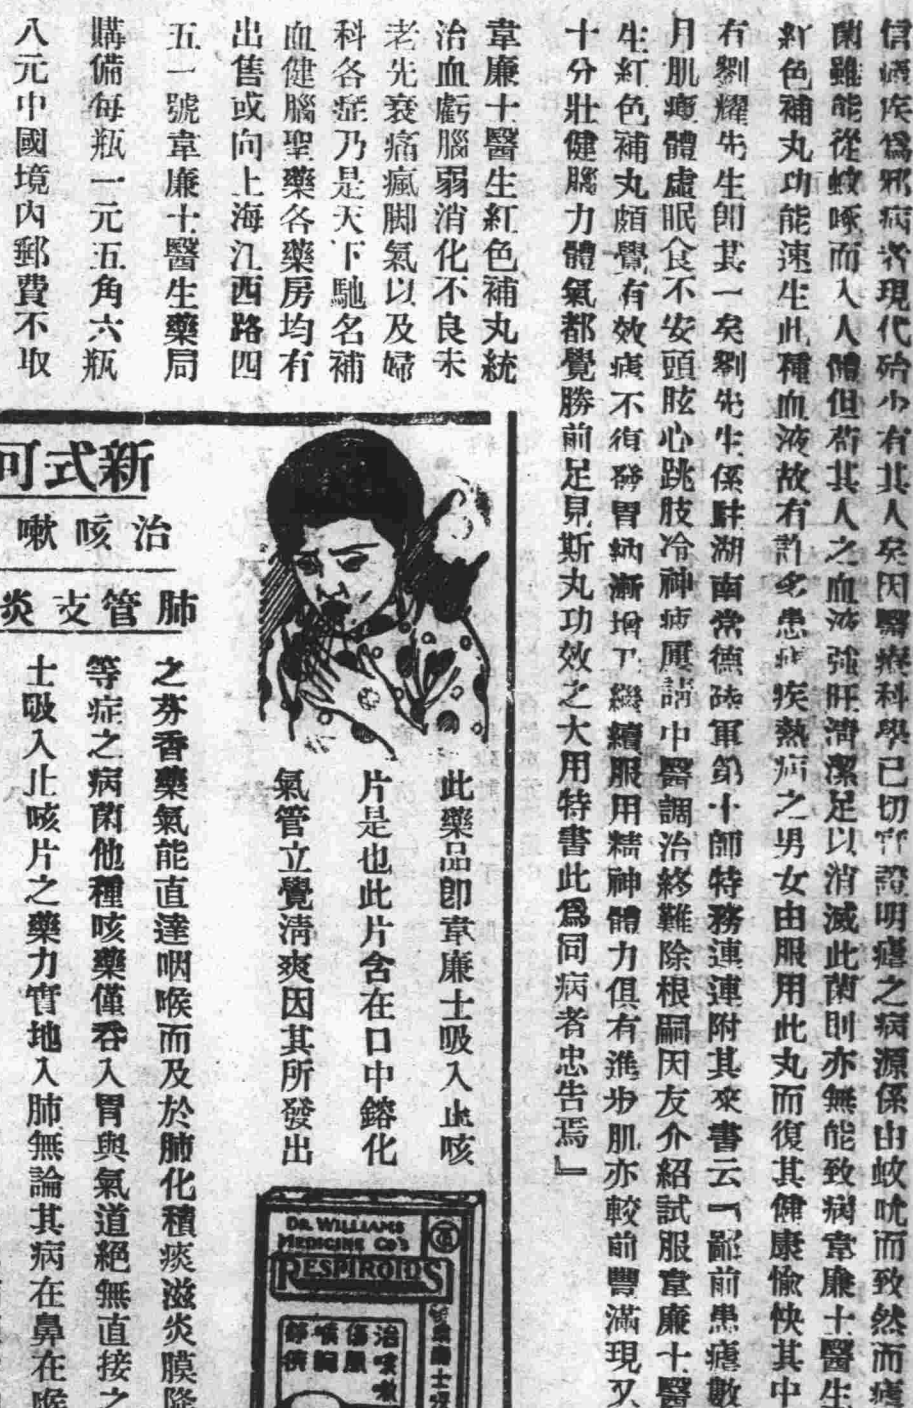 信瘧疾爲邪病者現代殆少有其人矣因醫療科學已切實證明瘧之病源係由蚊吮而致然而瘧
菌雖能從蚊啄而入人體但若其人之血液強旺清潔足以消滅此菌則亦無能致病韋廉士醫生
紅色補丸功能速生此種血液故有許多患瘧疾熱病之男女由服用此丸而復其健康愉快其中
有劉耀先生卽其一矣劉先生係駐湖南常德陸軍第十師特務連連附其來書云『鄙前患瘧數
月肌瘦體虛眠食不安頭眩心跳肢冷神疲屢請中醫調治終難除根嗣因友介紹試服韋廉士醫
生紅色補丸頗覺有效瘧不復發胃納漸增乃繼續服用精神體力俱有進步肌亦較前豐滿現又
十分壯健腦力體氣都覺勝前足見斯丸功效之大用特書此爲同病者忠告焉』
韋廉士醫生紅色補丸統
治血虧腦弱消化不良未
老先衰痛瘋脚氣以及婦
科各症乃是天下馳名補
血健腦聖藥各藥房均有
出售或向上海江西路四
五一號韋廉士醫生藥局
購備每瓶一元五角六瓶
八元中國境內郵費不取
新式可
治咳嗽
肺管支炎
此藥品卽韋廉士吸入止咳
片是也此片含在口中鎔化
氣管立覺淸爽因其所發出
之芬香藥氣能直達咽喉而及於肺化積痰滋炎膜
等症之病菌他種咳藥僅吞入胃與氣道絕無直接之
士吸入止咳片之藥力實地入肺無論其病在鼻在喉
DR. WILLIAMS
MEDICINE CO'S
RESPIROIDS
治咳嗽
傷風
喉